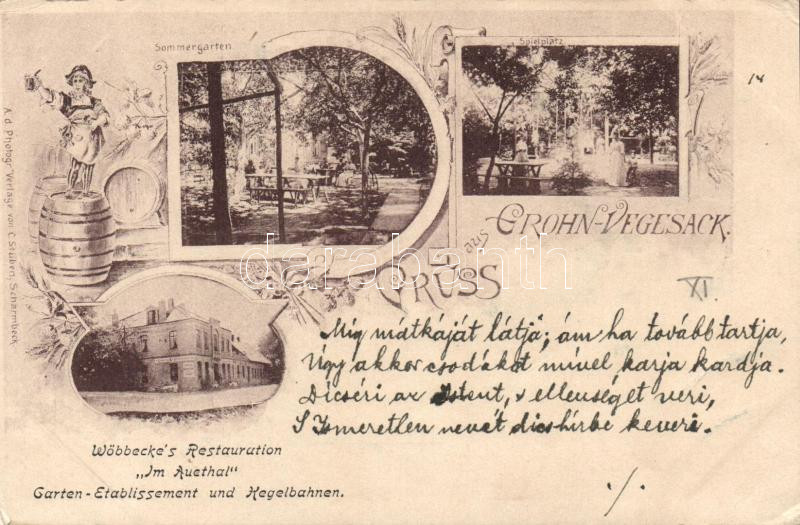 Sommergarten
Spielplatz
14
GRUSS aus GROHN-VEGESACK.
A. d. Photogr. Verlage von C. Stüben, Scharmbeck.
darabanth
XI.
Míg mátkáját látja; ám ha tovább tartja,
Úgy akkor csodákat mivel karja kardja.
Dicséri az Istent, s ellenséget veri,
S Ismeretlen nevét dicshírbe keveri.
./.
Wöbbecke's Restauration
„Im Auethal"
Garten-Etablissement und Kegelbahnen.